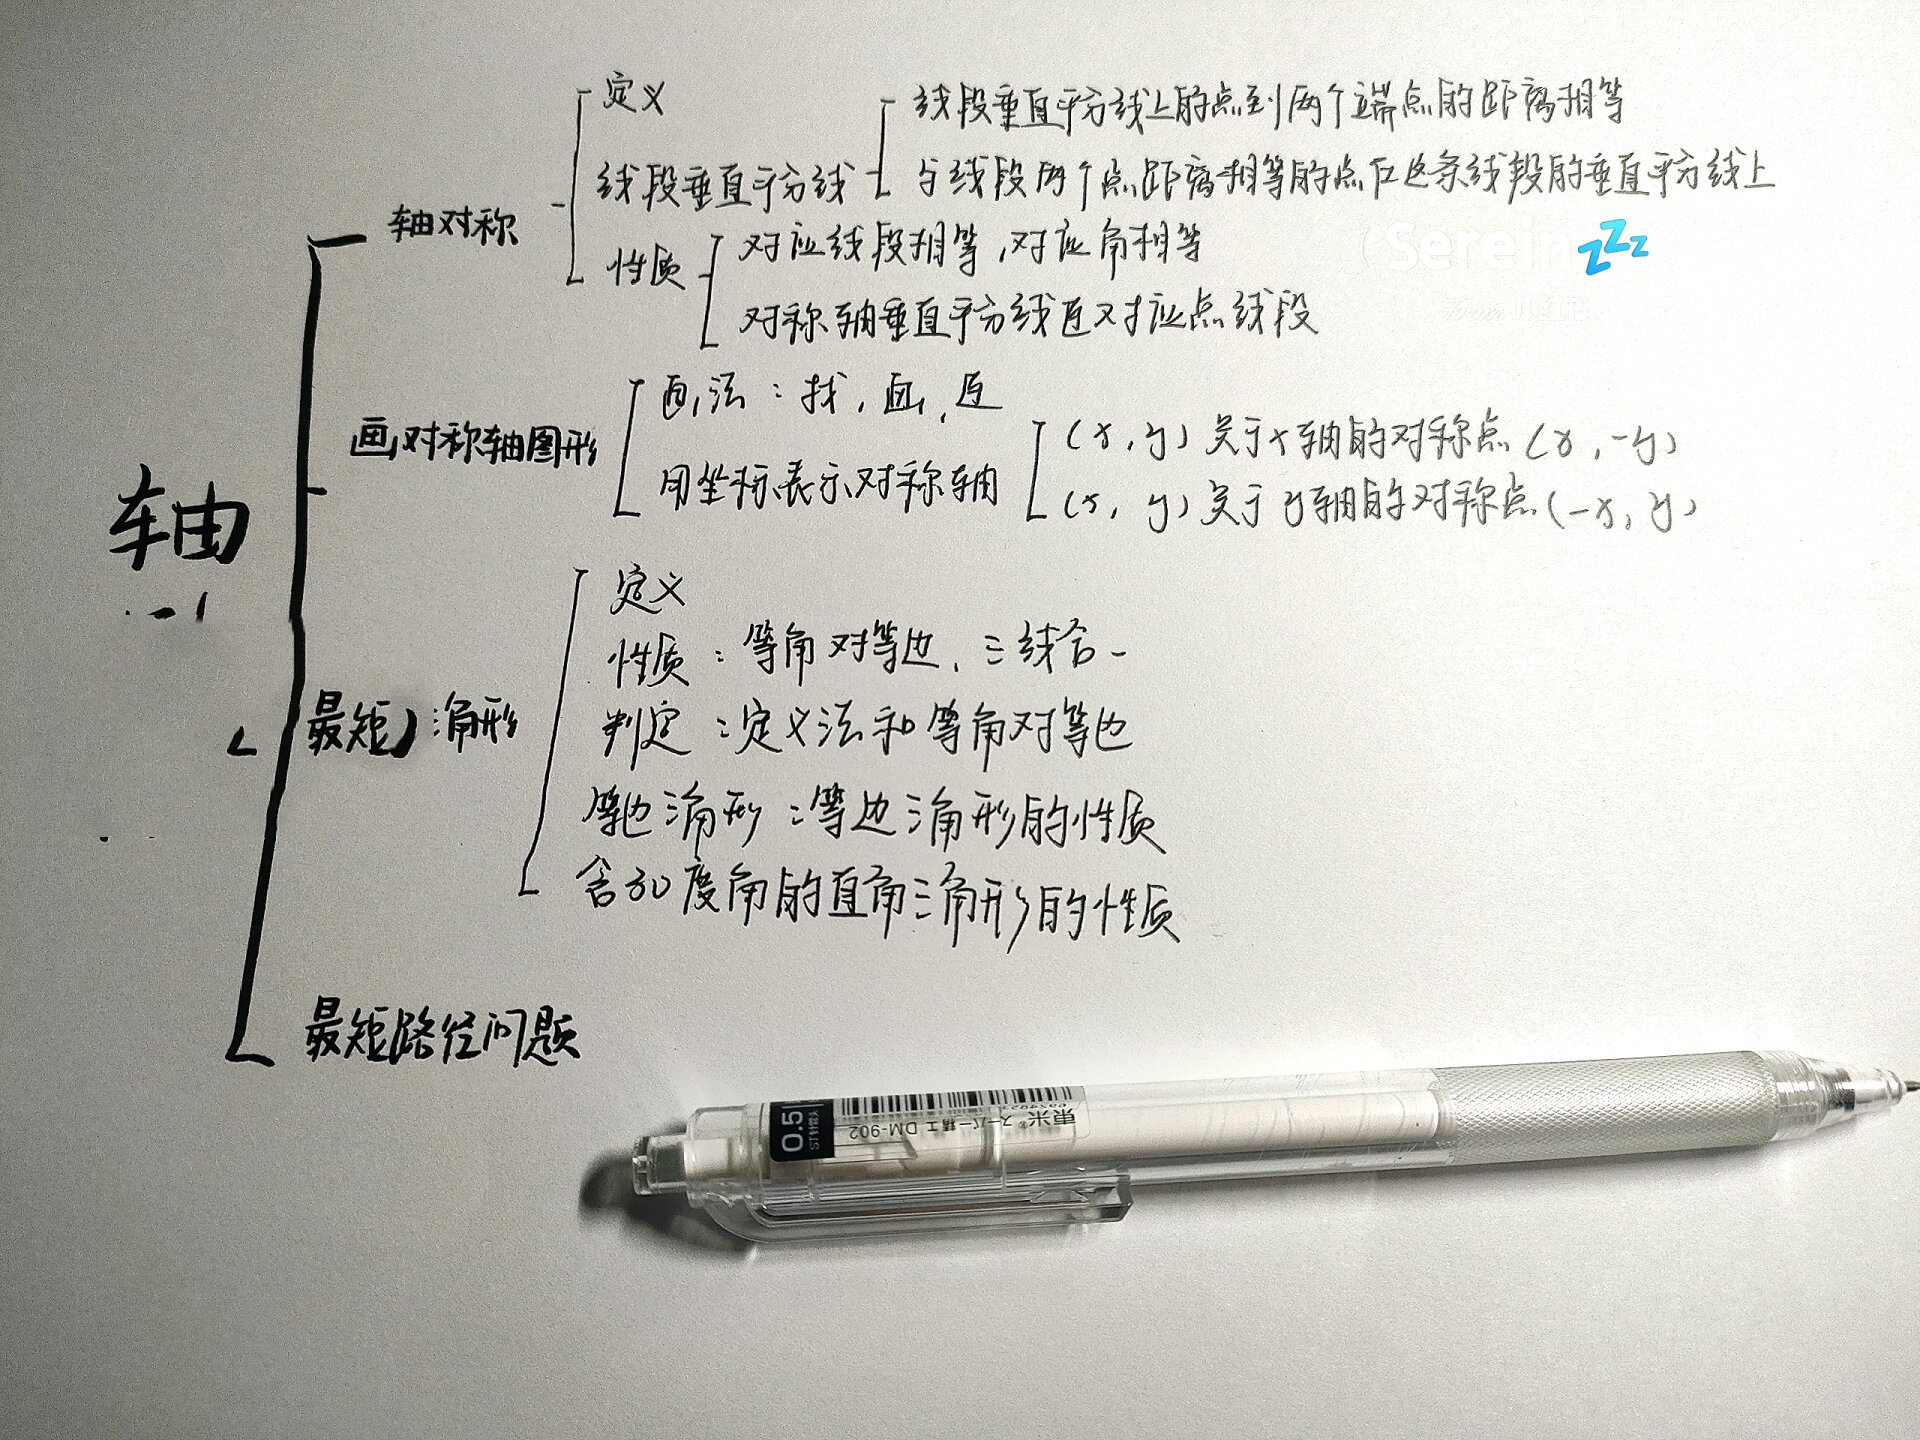 定义
线段垂直平分线上的点到两个端点的距离相等
线段垂直平分线
与线段两个点距离相等的点在这条线段的垂直平分线上
轴对称
性质
对应线段相等,对应角相等
对称轴垂直平分线连对应点线段
Serein 💤
画法:找,画,连
画对称轴图形
用坐标表示对称轴
(x,y)关于x轴的对称点(x,-y)
(x,y)关于y轴的对称点(-x,y)
轴
定义
性质:等角对等边、三线合一
最短 三角形
判定:定义法和等角对等边
等边三角形:等边三角形的性质
含30度角的直角三角形的性质
最短路径问题
0.5
ST针管头
東米® スーパー精工 DM-902